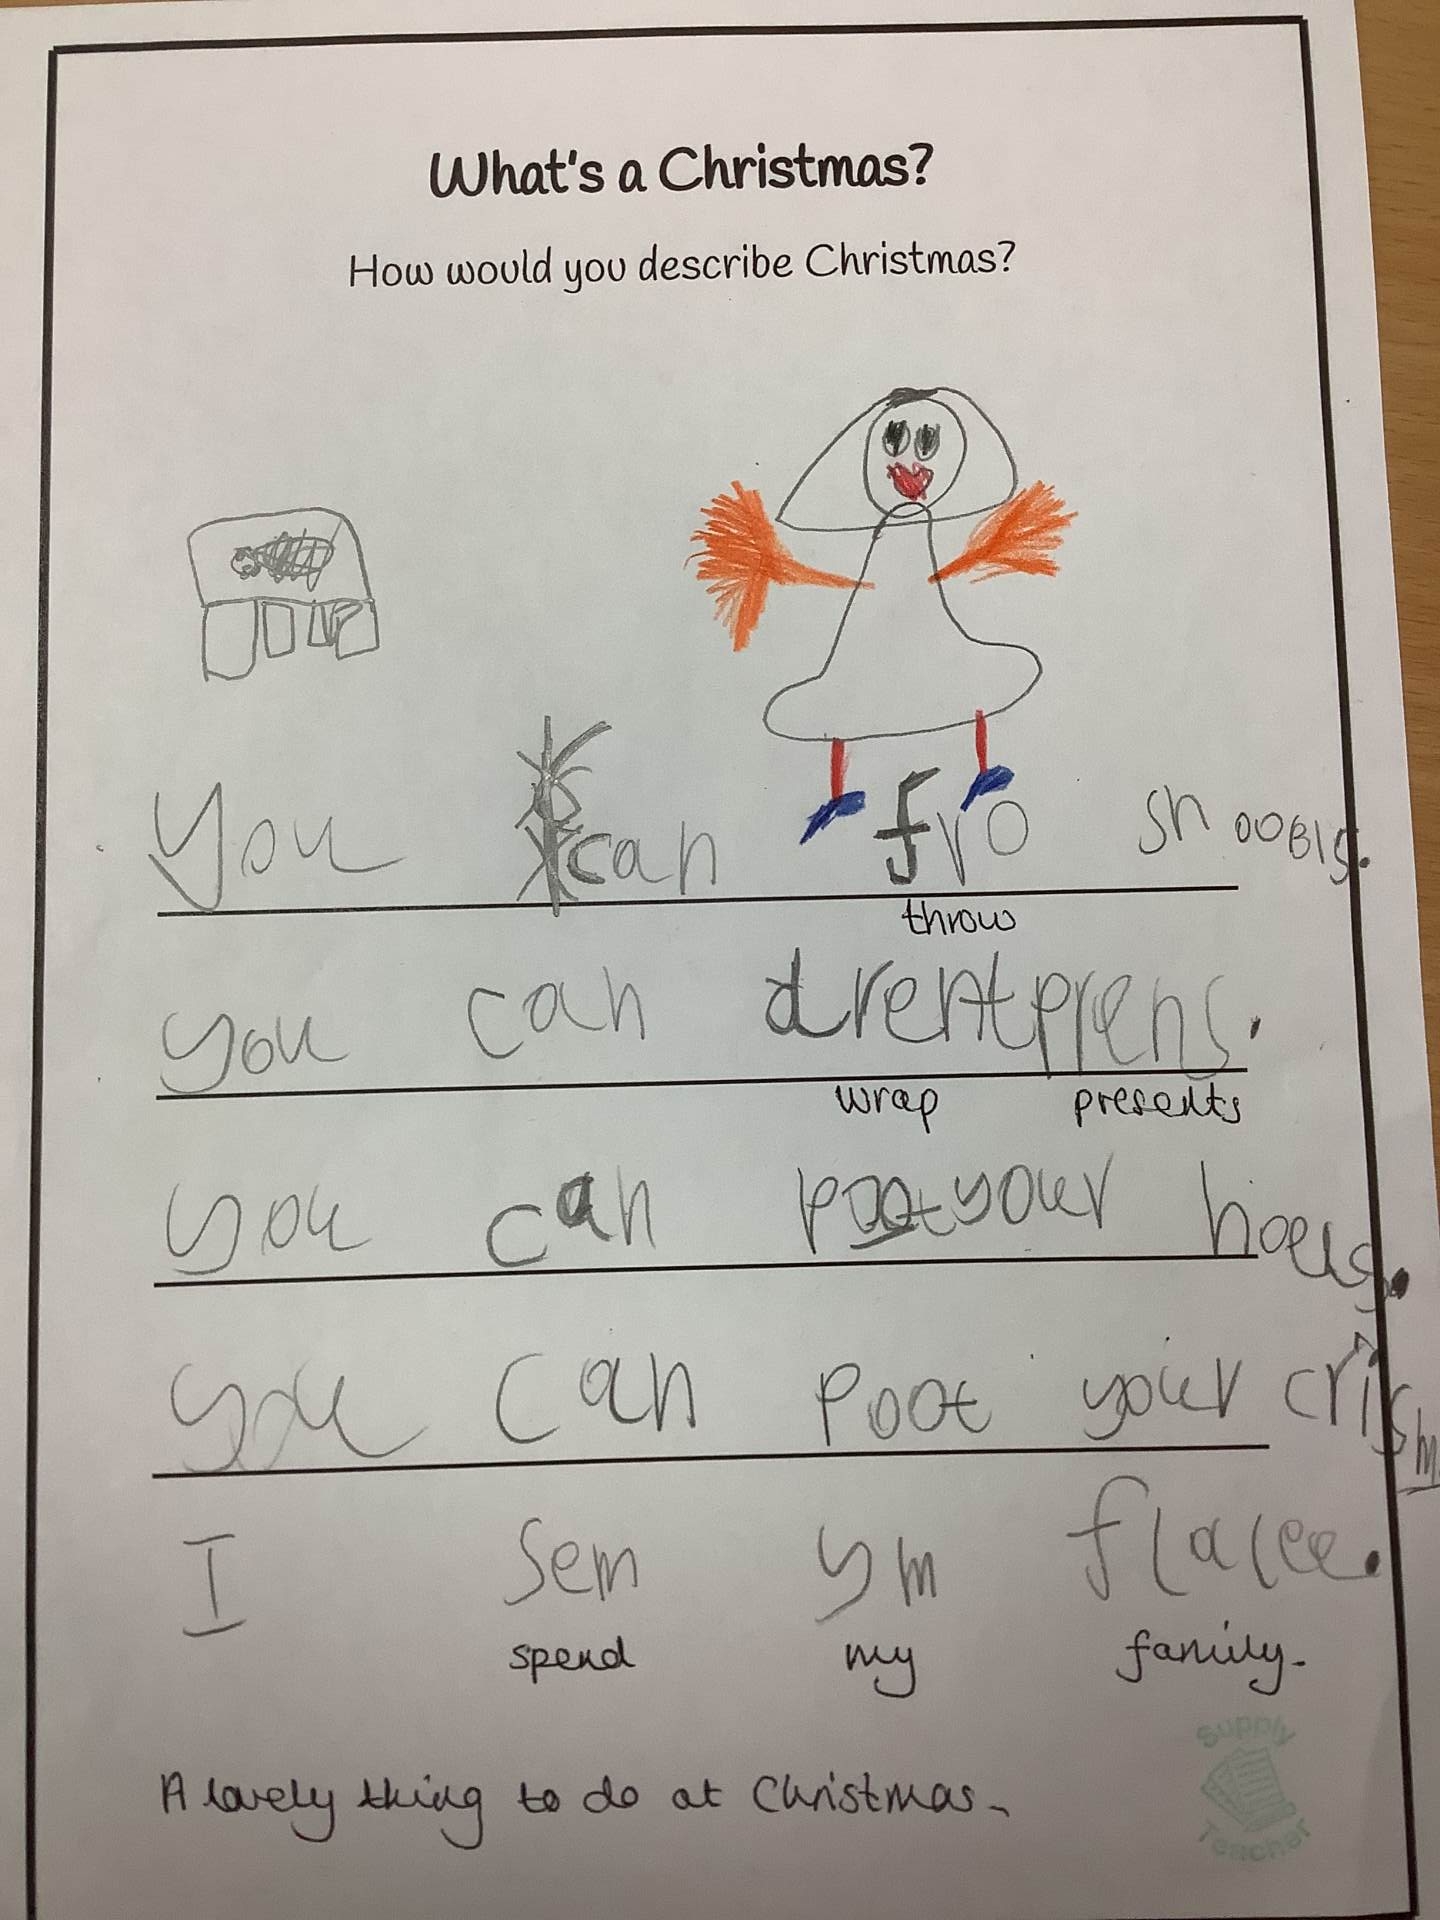 What's a Christmas?
How would you describe Christmas?
You can fro snooBls.
throw
you can drentprens.
wrap presents
you can pootyour hoeus.
you can poot your crism
I sem ym flalee.
spend my family.
A lovely thing to do at Christmas.
Supply
Teacher